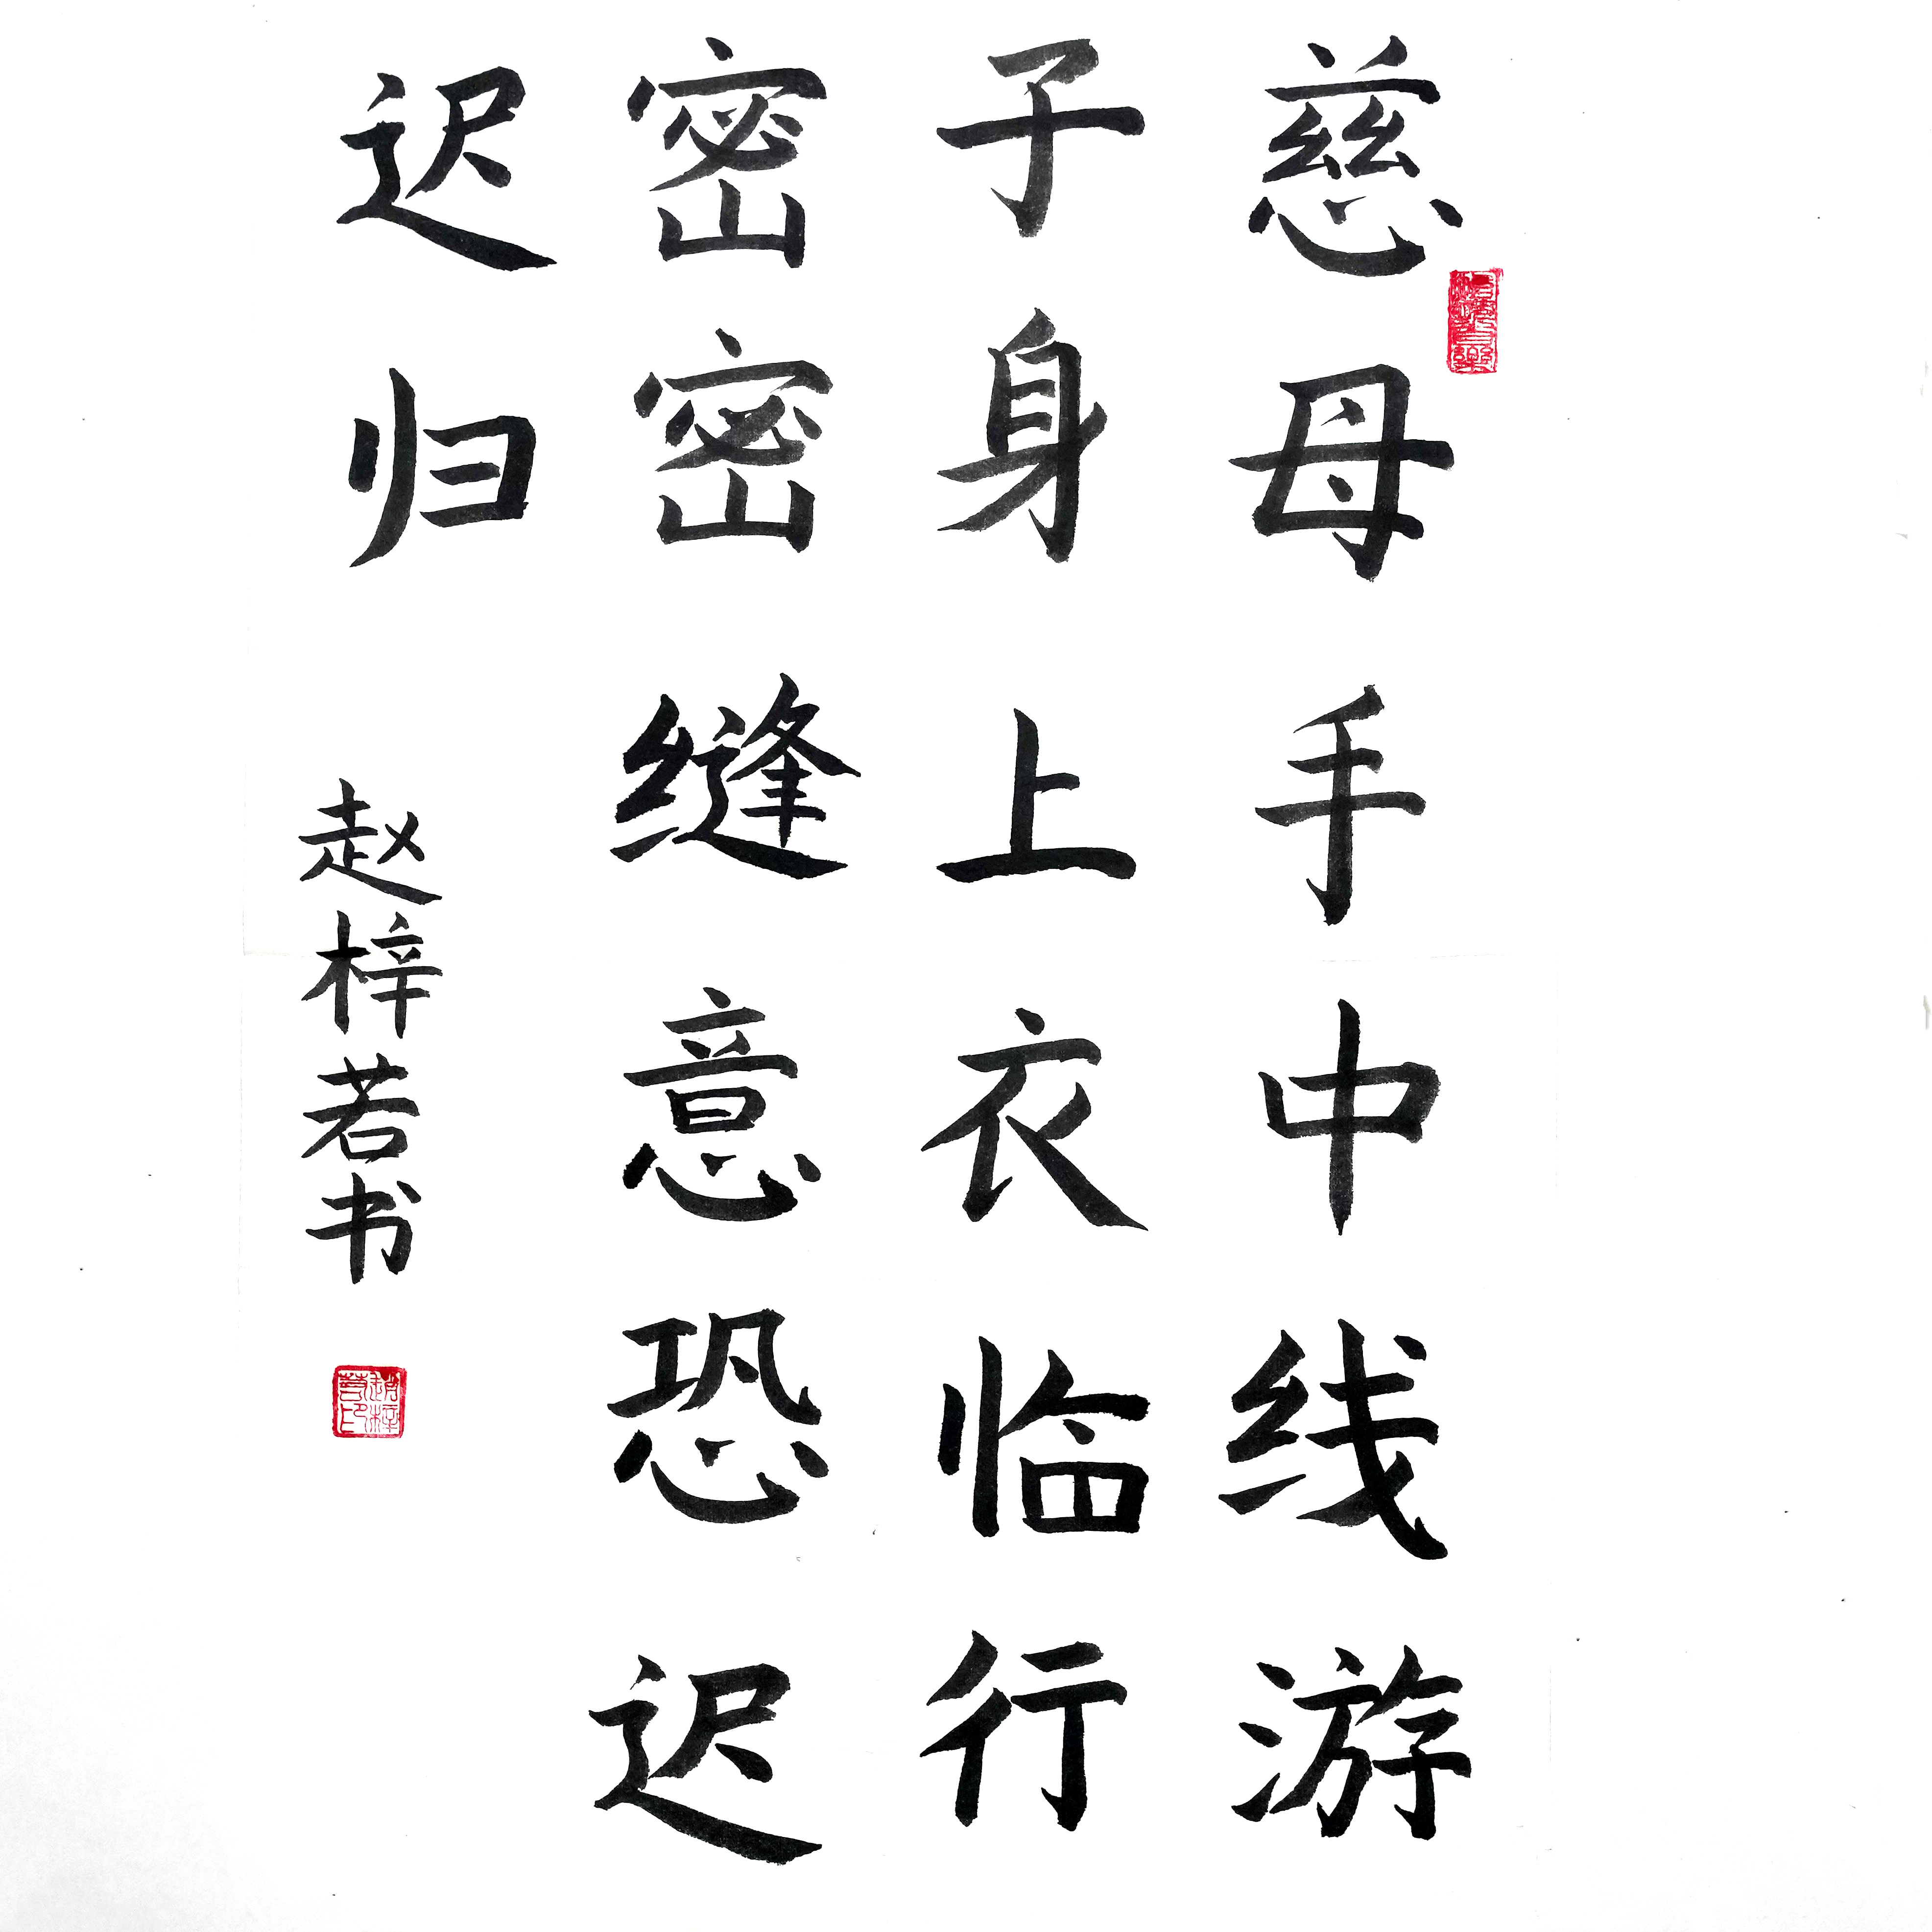 慈母手中线游
子身上衣临行
密密缝意恐迟
迟归
赵梓若书